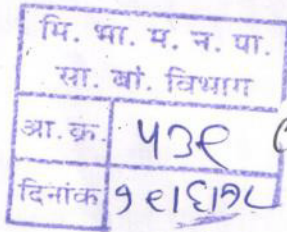 मि. भा. म. न. पा.
सा. बां. विभाग
आ. क्र. ५३९
दिनांक १९/६/१८